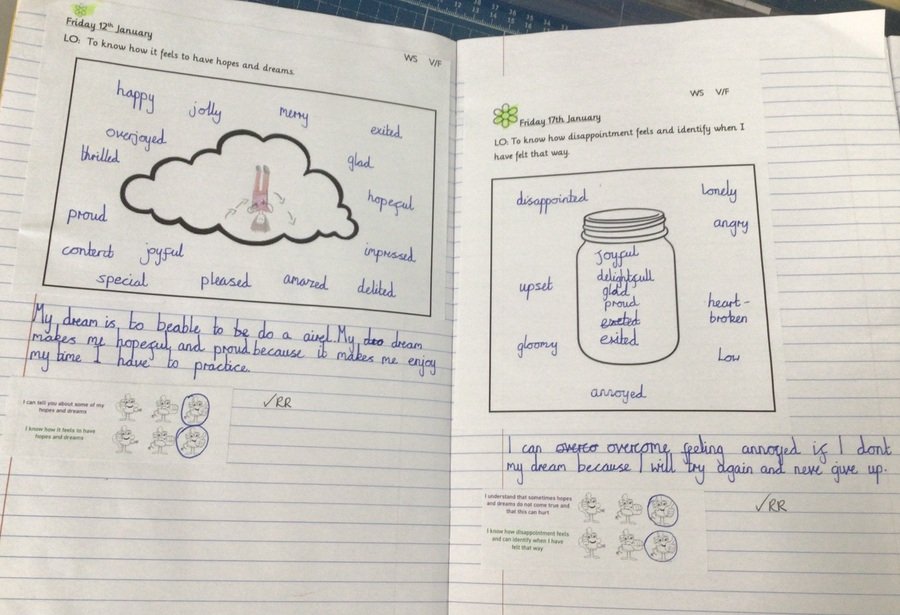 Friday 12th January
LO: To know how it feels to have hopes and dreams.
WS V/F
happy
jolly
merry
exited
overjoyed
thrilled
glad
hopeful
proud
content
joyful
impressed
special
pleased
amazed
delited
My dream is to beable to be do a airel. My dream
makes me hopeful and proud because it makes me enjoy
my time I have to practice.
I can tell you about some of my
hopes and dreams
I know how it feels to have
hopes and dreams
✓RR
WS V/F
Friday 17th January
LO: To know how disappointment feels and identify when I
have felt that way.
disappointed
Lonely
angry
Joyful
delightfull
glad
proud
exited
exited
upset
heart-
broken
gloomy
Low
annoyed
I can overco overcome feeling annoyed if I dont
my dream because I will try again and neve give up.
I understand that sometimes hopes
and dreams do not come true and
that this can hurt
I know how disappointment feels
and can identify when I have
felt that way
✓RR